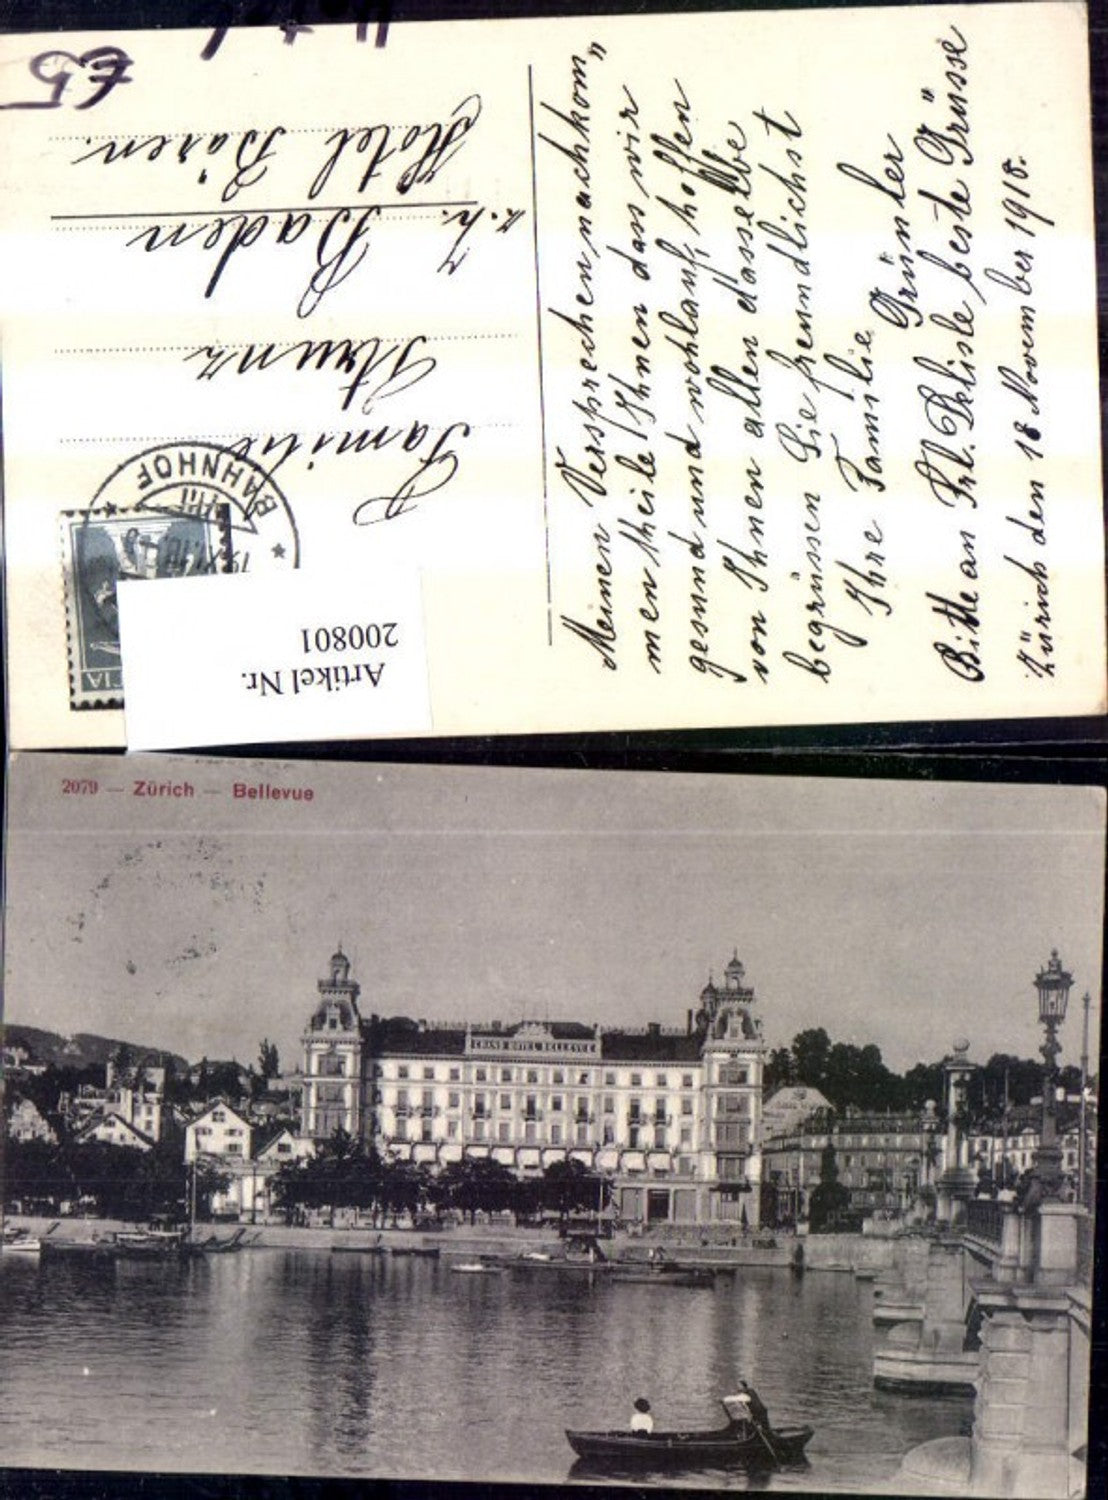 Hotel
£5
Familie
Strunz
z. h. Baden
Hotel Bären.
BAHNHOF
Artikel Nr.
200801
Meinen Versprechen nachkom„
men theile Ihnen dass wir
gesund und wohlauf, hoffen
von Ihnen allen dasselbe
begrüssen Sie freundlichst
Ihre Familie
Grümler
Bitte an Frl. Delisle beste Grüsse
Zürich den 18 November 1918.
2079 — Zürich — Bellevue
GRAND HOTEL BELLEVUE